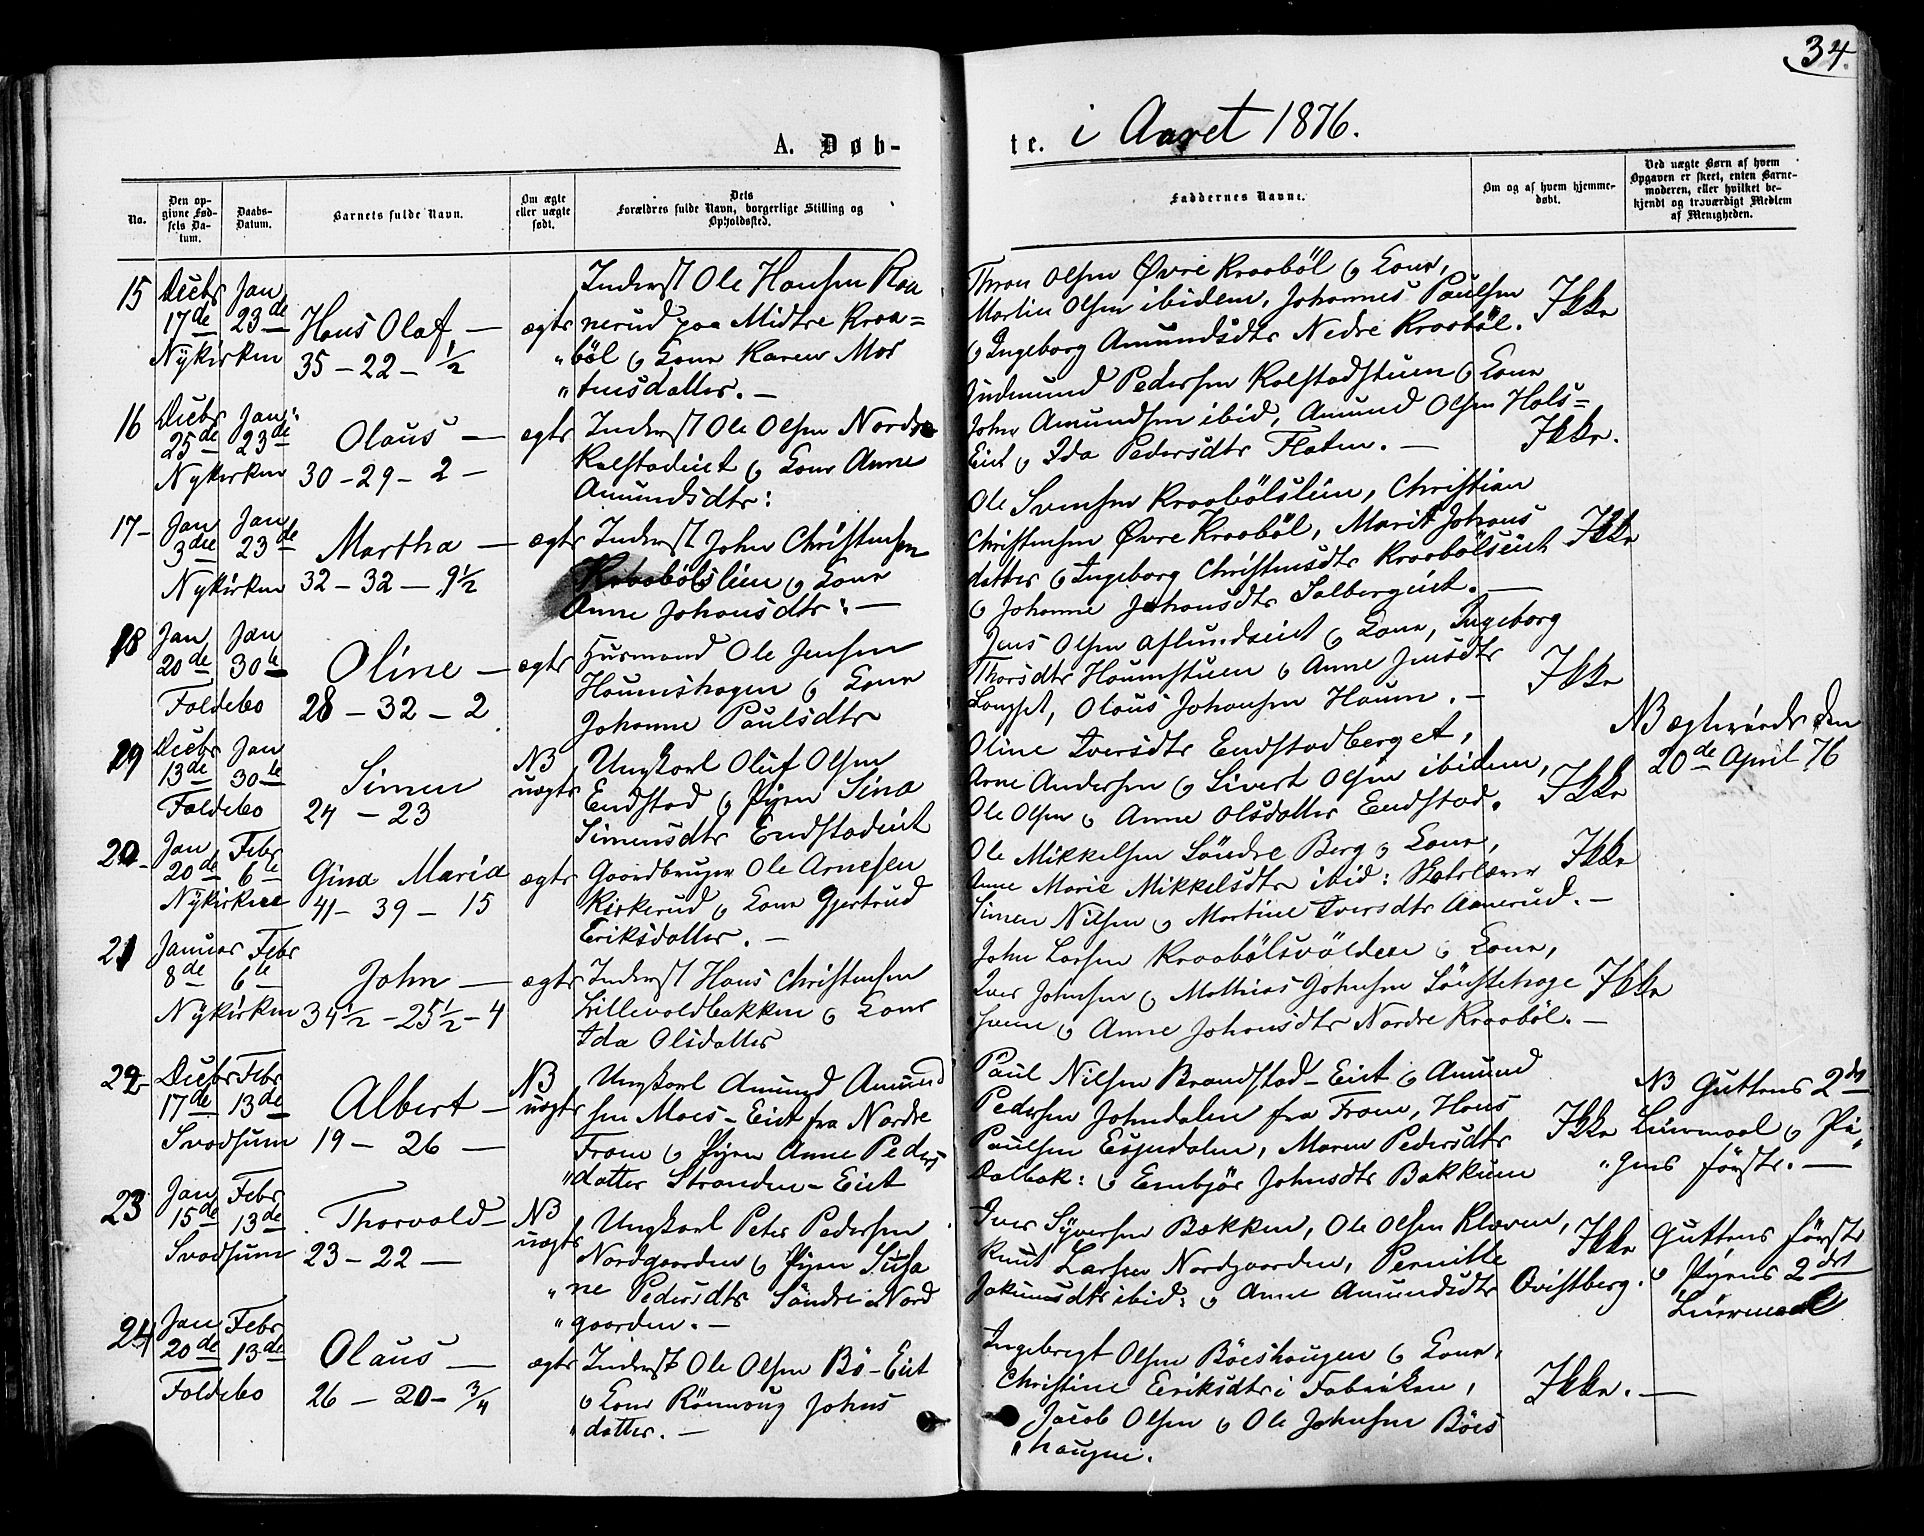 34.
A. Døb-
te. i Aaret 1876.
No.
Den op-
givne Fød-
sels Da-
tum.
Daabs-
Datum.
Barnets fulde Navn.
Om ægte
eller uægte
født.
Dets
Forældres fulde Navn, borgerlige Stilling og
Opholdssted.
Faddernes Navne.
Om og af hvem hjemme-
døbt.
Ved uægte Børn af hvem
Opgaven er skeet, enten Barne-
moderen, eller hvilket be-
kjendt og troværdigt Medlem
af Menigheden.
15 Decbr Jan
17de 23de Hans Olaf — ægte
Nykirken 35 - 22 - 1/2
Inderst Ole Hansen Raa
nerud paa Midtre Kraa=
"böl og Kone Karen Mor
"tensdatter. —
Thron Olsen Øvre Kraaböl og Kone,
Martin Olsen ibidem, Johannes Paulsen
og Ingeborg Amundsdtr Nedre Kraaböl. Ikke
16 Decbr Jan:
25de 23de Olaus — ægte
Nykirken 30 - 29 - 2 -
Inderst Ole Olsen Nordre
Kalstadeiet og Kone Anne
Amundsdtr:
Pedersen Kolstadstuen og Kone
John Amundsen ibid, Amund Olsen Hols=
Eiet og Ida Pedersdtr Flaten. — Ikke.
17- Jan Jan
3die 23de Martha — ægte
Nykirken 32 - 32 - 9 1/2
Inderst John Christensen
Kraabölslien og Kone
Anne Johansdtr: —
Ole Svensen Kraabölslien, Christian
Christensen Øvre Kraaböl, Marit Johans
datter og Ingeborg Christensdtr Kraabölseiet Ikke
og Johanne Johansdtr Solbergeiet. —
18 Jan Jan
20de 30te Oline — ægte
Foldebo 28 - 32 - 2
Husmand Ole Jensen
Houmshagen og Kone
Johanne Paulsdtr
Jens Olsen Aflundseiet og Kone, Ingeborg
Thorsdtr Houmstuen og Anne Jensdtr
Longset, Olaus Johansen Houm. — Ikke
19 Decbr Jan
13de 30te Simen
Foldebo 24 - 23
NB
uægte
Ungkarl Oluf Olsen
Endstad og Pigen Sina
Simensdtr Endstadeiet
Oline Iversdtr Endstadberget,
Arne Andersen og Sivert Olsen ibidem,
Ole Olsen og Anne Olsdatter Endstad. Ikke
NB ægteviede den
20de April 76
20- Jan Febr
20de 6te Gina Maria ægte
Nykirken 41 - 39 - 15
Gaardbruger Ole Arnesen
Kirkerud og Kone Gjertrud
Eriksdatter. —
Ole Mikkelsen Söndre Berg og Kone,
Anne Marie Mikkelsdtr ibid: Ikke
Simen Nilsen og Martine Iversdtr Aanerud. —
21 Januar Febr
8de 6te John — ægte
Nykirken 34 1/2 - 25 1/2 - 4
Inderst Hans Christensen
Lillevoldbakken og Kone
Ida Olsdatter
John Larsen Kraabölsvölden og Kone,
Iver Johnsen og Mathias Johnsen Ikke
og Anne Johansdtr Nordre Kraaböl. —
22- Decbr Febr
17de 13de Albert —
Svadsum 19 - 26 —
NB
uægte
Ungkarl Amund Amund
sen Moes-Eiet fra Nordre
Fron og Pigen Anne Peders
"datter Stranden-Eiet
Paul Nilsen Brandstad-Eiet og Amund
Pedersen Johndalen fra Fron, Hans
Paulsen Espedalen, Maren Pedersdtr Ikke
Dalbak: og Embjör Johnsdtr Bakkum
NB Guttens 2det
Leiermaal og Pi
"gens förste. —
23 Jan Febr
15de 13de Thorvald —
Svadsum 23 - 22 —
NB
uægte
Ungkarl Peter Pedersen
Nordgaarden og Pigen Susa
"ne Pedersdtr Söndre Nord
"gaarden. —
Iver Syversen Bakken, Ole Olsen Kleven,
Knut Larsen Nordgaarden, Pernille Ikke
Jokumsdtr ibid: og Anne Amundsdtr Qvistberg.
Guttens förste
og Pigens 2det
Leiermaal
24 Jan Febr
20de 13de Olaus — ægte
Foldebo 26 - 20 - 3/4
Inderst Ole Olsen Bö-Eiet
og Kone Rönnaug Johns
"datter. —
Ingebregt Olsen Böeshougen og Kone,
Christine Eriksdtr i Fabriken, Ikke. —
Jacob Olsen og Ole Johnsen Böes
"hougen.